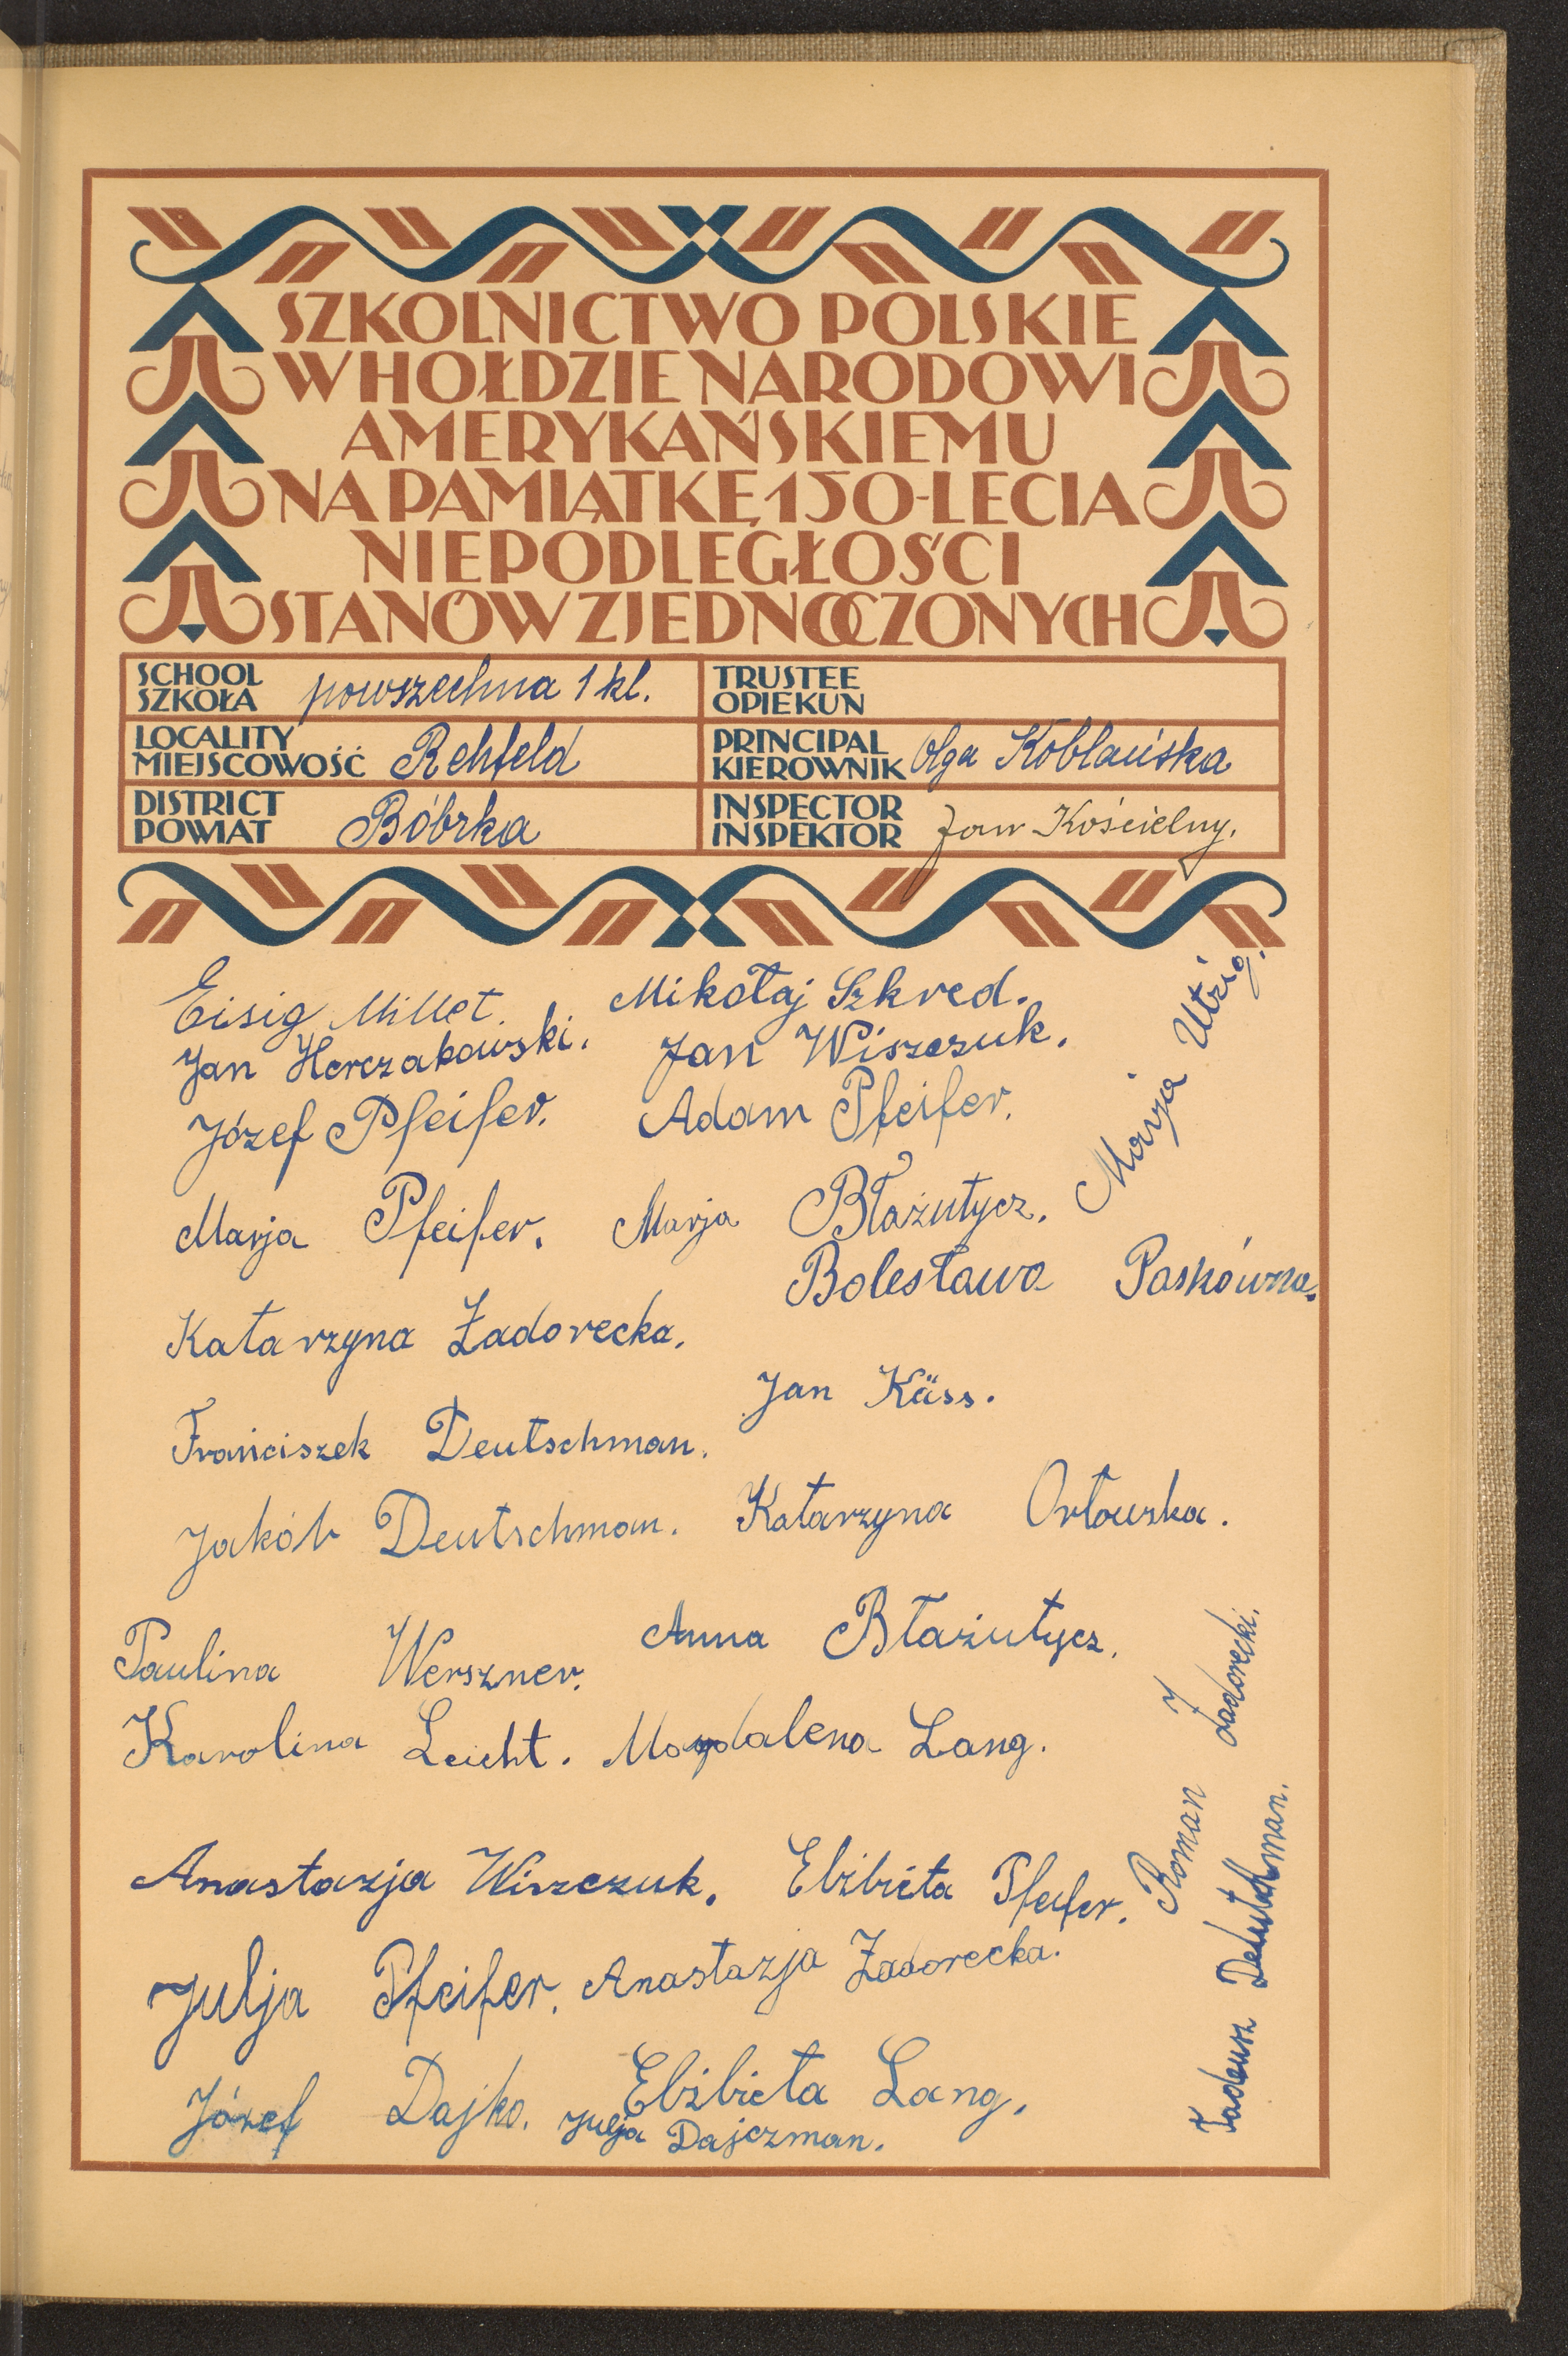 SZKOLNICTWO POLSKIE
W HOŁDZIE NARODOWI
AMERYKAŃSKIEMU
NA PAMIĄTKĘ 150-LECIA
NIEPODLEGŁOŚCI
STANÓW ZJEDNOCZONYCH
SCHOOL
SZKOŁA powszechna 1 kl.
TRUSTEE
OPIEKUN
LOCALITY
MIEJSCOWOŚĆ Rehfeld
PRINCIPAL
KIEROWNIK Olga Kobłańska
DISTRICT
POWIAT Bóbrka
INSPECTOR
INSPEKTOR Jan Kościelny.
Eisig Millet. Mikołaj Szkred.
Jan Herczakowski. Jan Wiszczuk.
Józef Pfeifer. Adam Pfeifer.
Marja Utzig.
Marja Pfeifer. Marja Błażutycz.
Bolesława Paskówna.
Katarzyna Zadorecka.
Jan Käss.
Franciszek Deutschman.
Jakób Deutschman. Katarzyna Orłowska.
Paulina Werszner. Anna Błażutycz.
Karolina Leicht. Magdalena Lang.
Anastazja Wiszczuk. Elżbieta Pfeifer.
Roman Zadorecki.
Julja Pfeifer. Anastazja Zadorecka.
Tadeusz Deutschman.
Józef Dajko. Elżbieta Lang.
Julja Dajczman.